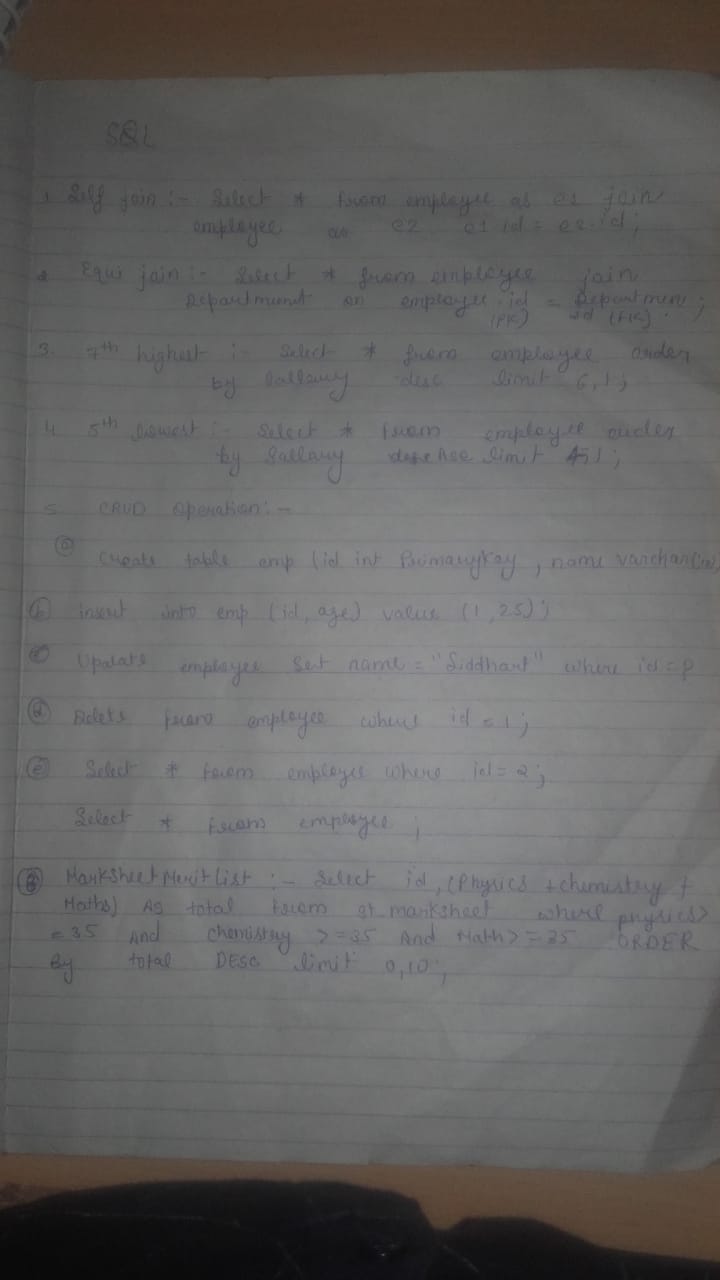 SQL
1 Self join :- Select * from employee as e1 join
employee as e2 e1 id = e2.id;
2 Equi join :- Select * from employee join
Department on employee.id = Department ;
(PK) id (FK).
3. 7th highest :- Select * from employee order
by Sallary desc limit 6,1;
4. 5th lowest :- Select * from employee order
by Sallary limit 4,1;
5 CRUD operation:-
(a) Create table emp (id int PrimaryKey, name varchar
(b) insert into emp (id, age) value (1,25);
(c) Update employee Set name = "Siddhart" where id =
(d) Delete from employee where id = 1;
(e) Select * from employee where id = 2;
Select * from employee ;
Marksheet Merit List :- Select id, (Physics + chemistry +
Maths) As total from marksheet where physics >
= 35 And chemistry >= 35 And Math >= 35 ORDER
By total DESC limit 0,10;